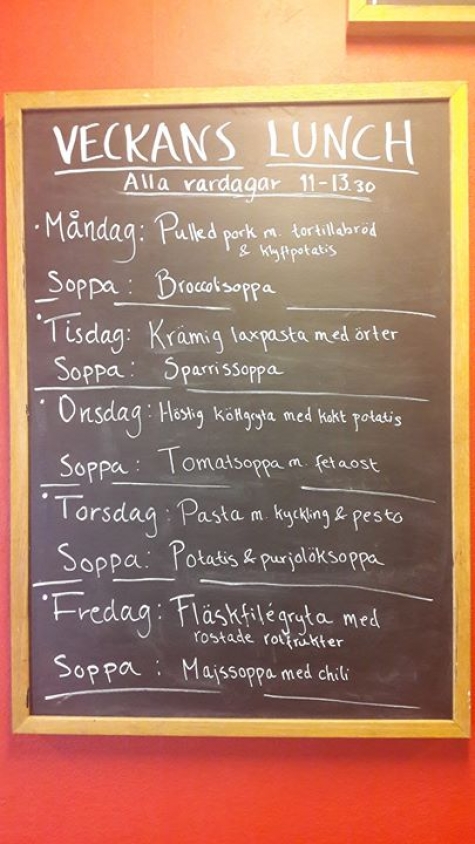 VECKANS LUNCH
Alla vardagar 11-13.30
· Måndag: Pulled pork m. tortillabröd
& klyftpotatis
Soppa: Broccolisoppa
· Tisdag: Krämig laxpasta med örter
Soppa: Sparrissoppa
· Onsdag: Höstig köttgryta med kokt potatis
Soppa: Tomatsoppa m. fetaost
· Torsdag: Pasta m. kyckling & pesto
Soppa: Potatis & purjolöksoppa
· Fredag: Fläskfilégryta med
rostade rotfrukter
Soppa: Majssoppa med chili